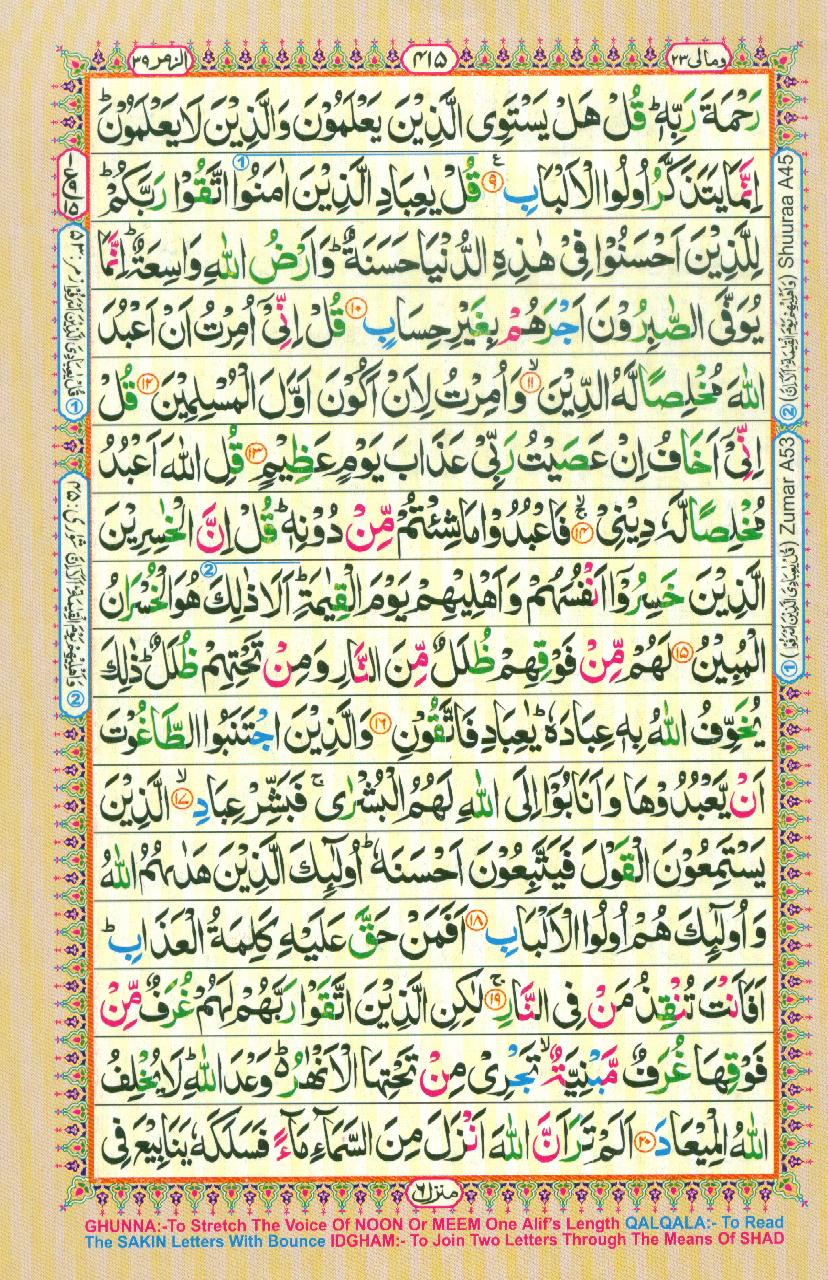 الزمر ۳۹
۴۱۵
ومالی ۲۳
رَحْمَةَ رَبِّهٖ ؕ قُلْ هَلْ يَسْتَوِى الَّذِيْنَ يَعْلَمُوْنَ وَالَّذِيْنَ لَا يَعْلَمُوْنَ ؕ
اِنَّمَا يَتَذَكَّرُ اُولُوا الْاَلْبَابِ ۹ قُلْ يٰعِبَادِ الَّذِيْنَ اٰمَنُوا اتَّقُوْا رَبَّكُمْ ؕ
لِلَّذِيْنَ اَحْسَنُوْا فِىْ هٰذِهِ الدُّنْيَا حَسَنَةٌ ؕ وَاَرْضُ اللّٰهِ وَاسِعَةٌ ؕ اِنَّمَا
يُوَفَّى الصّٰبِرُوْنَ اَجْرَهُمْ بِغَيْرِ حِسَابٍ ۱۰ قُلْ اِنِّىْۤ اُمِرْتُ اَنْ اَعْبُدَ
اللّٰهَ مُخْلِصًا لَّهُ الدِّيْنَ ۙ ۱۱ وَاُمِرْتُ لِاَنْ اَكُوْنَ اَوَّلَ الْمُسْلِمِيْنَ ۱۲ قُلْ
اِنِّىْۤ اَخَافُ اِنْ عَصَيْتُ رَبِّىْ عَذَابَ يَوْمٍ عَظِيْمٍ ۱۳ قُلِ اللّٰهَ اَعْبُدُ
مُخْلِصًا لَّهٗ دِيْنِىْ ۙ ۱۴ فَاعْبُدُوْا مَا شِئْتُمْ مِّنْ دُوْنِهٖ ؕ قُلْ اِنَّ الْخٰسِرِيْنَ
الَّذِيْنَ خَسِرُوْۤا اَنْفُسَهُمْ وَاَهْلِيْهِمْ يَوْمَ الْقِيٰمَةِ ؕ اَلَا ذٰلِكَ هُوَ الْخُسْرَانُ
الْمُبِيْنُ ۱۵ لَهُمْ مِّنْ فَوْقِهِمْ ظُلَلٌ مِّنَ النَّارِ وَمِنْ تَحْتِهِمْ ظُلَلٌ ؕ ذٰلِكَ
يُخَوِّفُ اللّٰهُ بِهٖ عِبَادَهٗ ؕ يٰعِبَادِ فَاتَّقُوْنِ ۱۶ وَالَّذِيْنَ اجْتَنَبُوا الطَّاغُوْتَ
اَنْ يَّعْبُدُوْهَا وَاَنَابُوْۤا اِلَى اللّٰهِ لَهُمُ الْبُشْرٰى ۚ فَبَشِّرْ عِبَادِ ۙ ۱۷ الَّذِيْنَ
يَسْتَمِعُوْنَ الْقَوْلَ فَيَتَّبِعُوْنَ اَحْسَنَهٗ ؕ اُولٰٓئِكَ الَّذِيْنَ هَدٰىهُمُ اللّٰهُ
وَاُولٰٓئِكَ هُمْ اُولُوا الْاَلْبَابِ ۱۸ اَفَمَنْ حَقَّ عَلَيْهِ كَلِمَةُ الْعَذَابِ ؕ
اَفَاَنْتَ تُنْقِذُ مَنْ فِى النَّارِ ۚ ۱۹ لٰكِنِ الَّذِيْنَ اتَّقَوْا رَبَّهُمْ لَهُمْ غُرَفٌ مِّنْ
فَوْقِهَا غُرَفٌ مَّبْنِيَّةٌ ۙ تَجْرِىْ مِنْ تَحْتِهَا الْاَنْهٰرُ ؕ وَعْدَ اللّٰهِ ؕ لَا يُخْلِفُ
اللّٰهُ الْمِيْعَادَ ۲۰ اَلَمْ تَرَ اَنَّ اللّٰهَ اَنْزَلَ مِنَ السَّمَآءِ مَآءً فَسَلَكَهٗ يَنَابِيْعَ فِى
② Shuuraa A45
① Zumar A53
منزل ۶
GHUNNA:-To Stretch The Voice Of NOON Or MEEM One Alif's Length QALQALA:- To Read
The SAKIN Letters With Bounce IDGHAM:- To Join Two Letters Through The Means Of SHAD